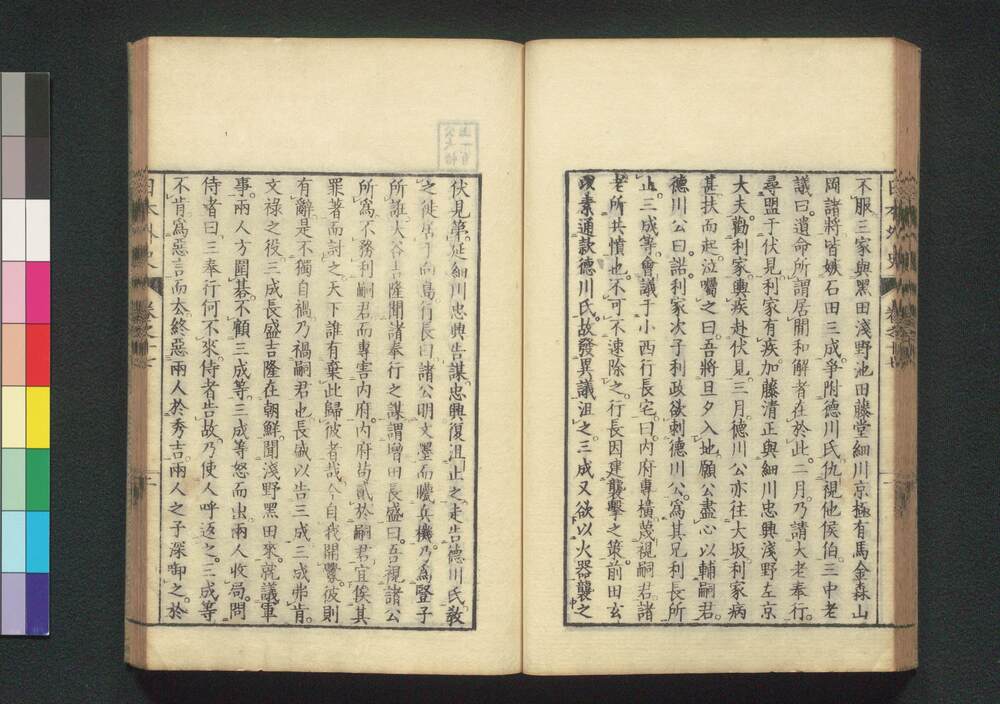 不服三家與黑田淺野池田藤堂細川京極有馬金森山
岡諸將皆嫉石田三成爭附德川氏仇視他侯伯三中老
議曰遺命所謂居閒和解者在於此二月乃請大老奉行
尋盟于伏見利家有疾加藤清正與細川忠興淺野左京
大夫勸利家輿疾赴伏見三月德川公亦往大坂利家病
甚扶而起泣囑之曰吾將旦夕入地願公盡心以輔嗣君
德川公曰諾利家次子利政欲刺德川公爲其兄利長所
止三成等會議于小西行長宅曰内府專橫蔑視嗣君諸
老所共憤也不可不速除之行長因建襲擊之策前田玄
以素通款德川氏故發異議沮之三成又欲以火器襲之
伏見第延細川忠興告謀忠興復沮止之走告德川氏敎
之徙居于向島行長曰諸公明文墨而矇兵機乃爲豎子
所誑大谷吉隆聞諸奉行之謀謂增田長盛曰吾視諸公
所爲不務利嗣君而專害内府内府苟貳於嗣君宜俟其
罪著而討之天下誰有棄此歸彼者哉今自我開釁彼則
有辭是不獨自禍乃禍嗣君也長盛以告三成三成弗肯
文祿之役三成長盛吉隆在朝鮮聞淺野黑田來就議軍
事兩人方圍棊不顧三成等三成等怒而出兩人收局問
侍者曰三奉行何不來侍者告故乃使人呼返之三成等
不肯爲惡言而去終惡兩人於秀吉兩人之子深啣之於